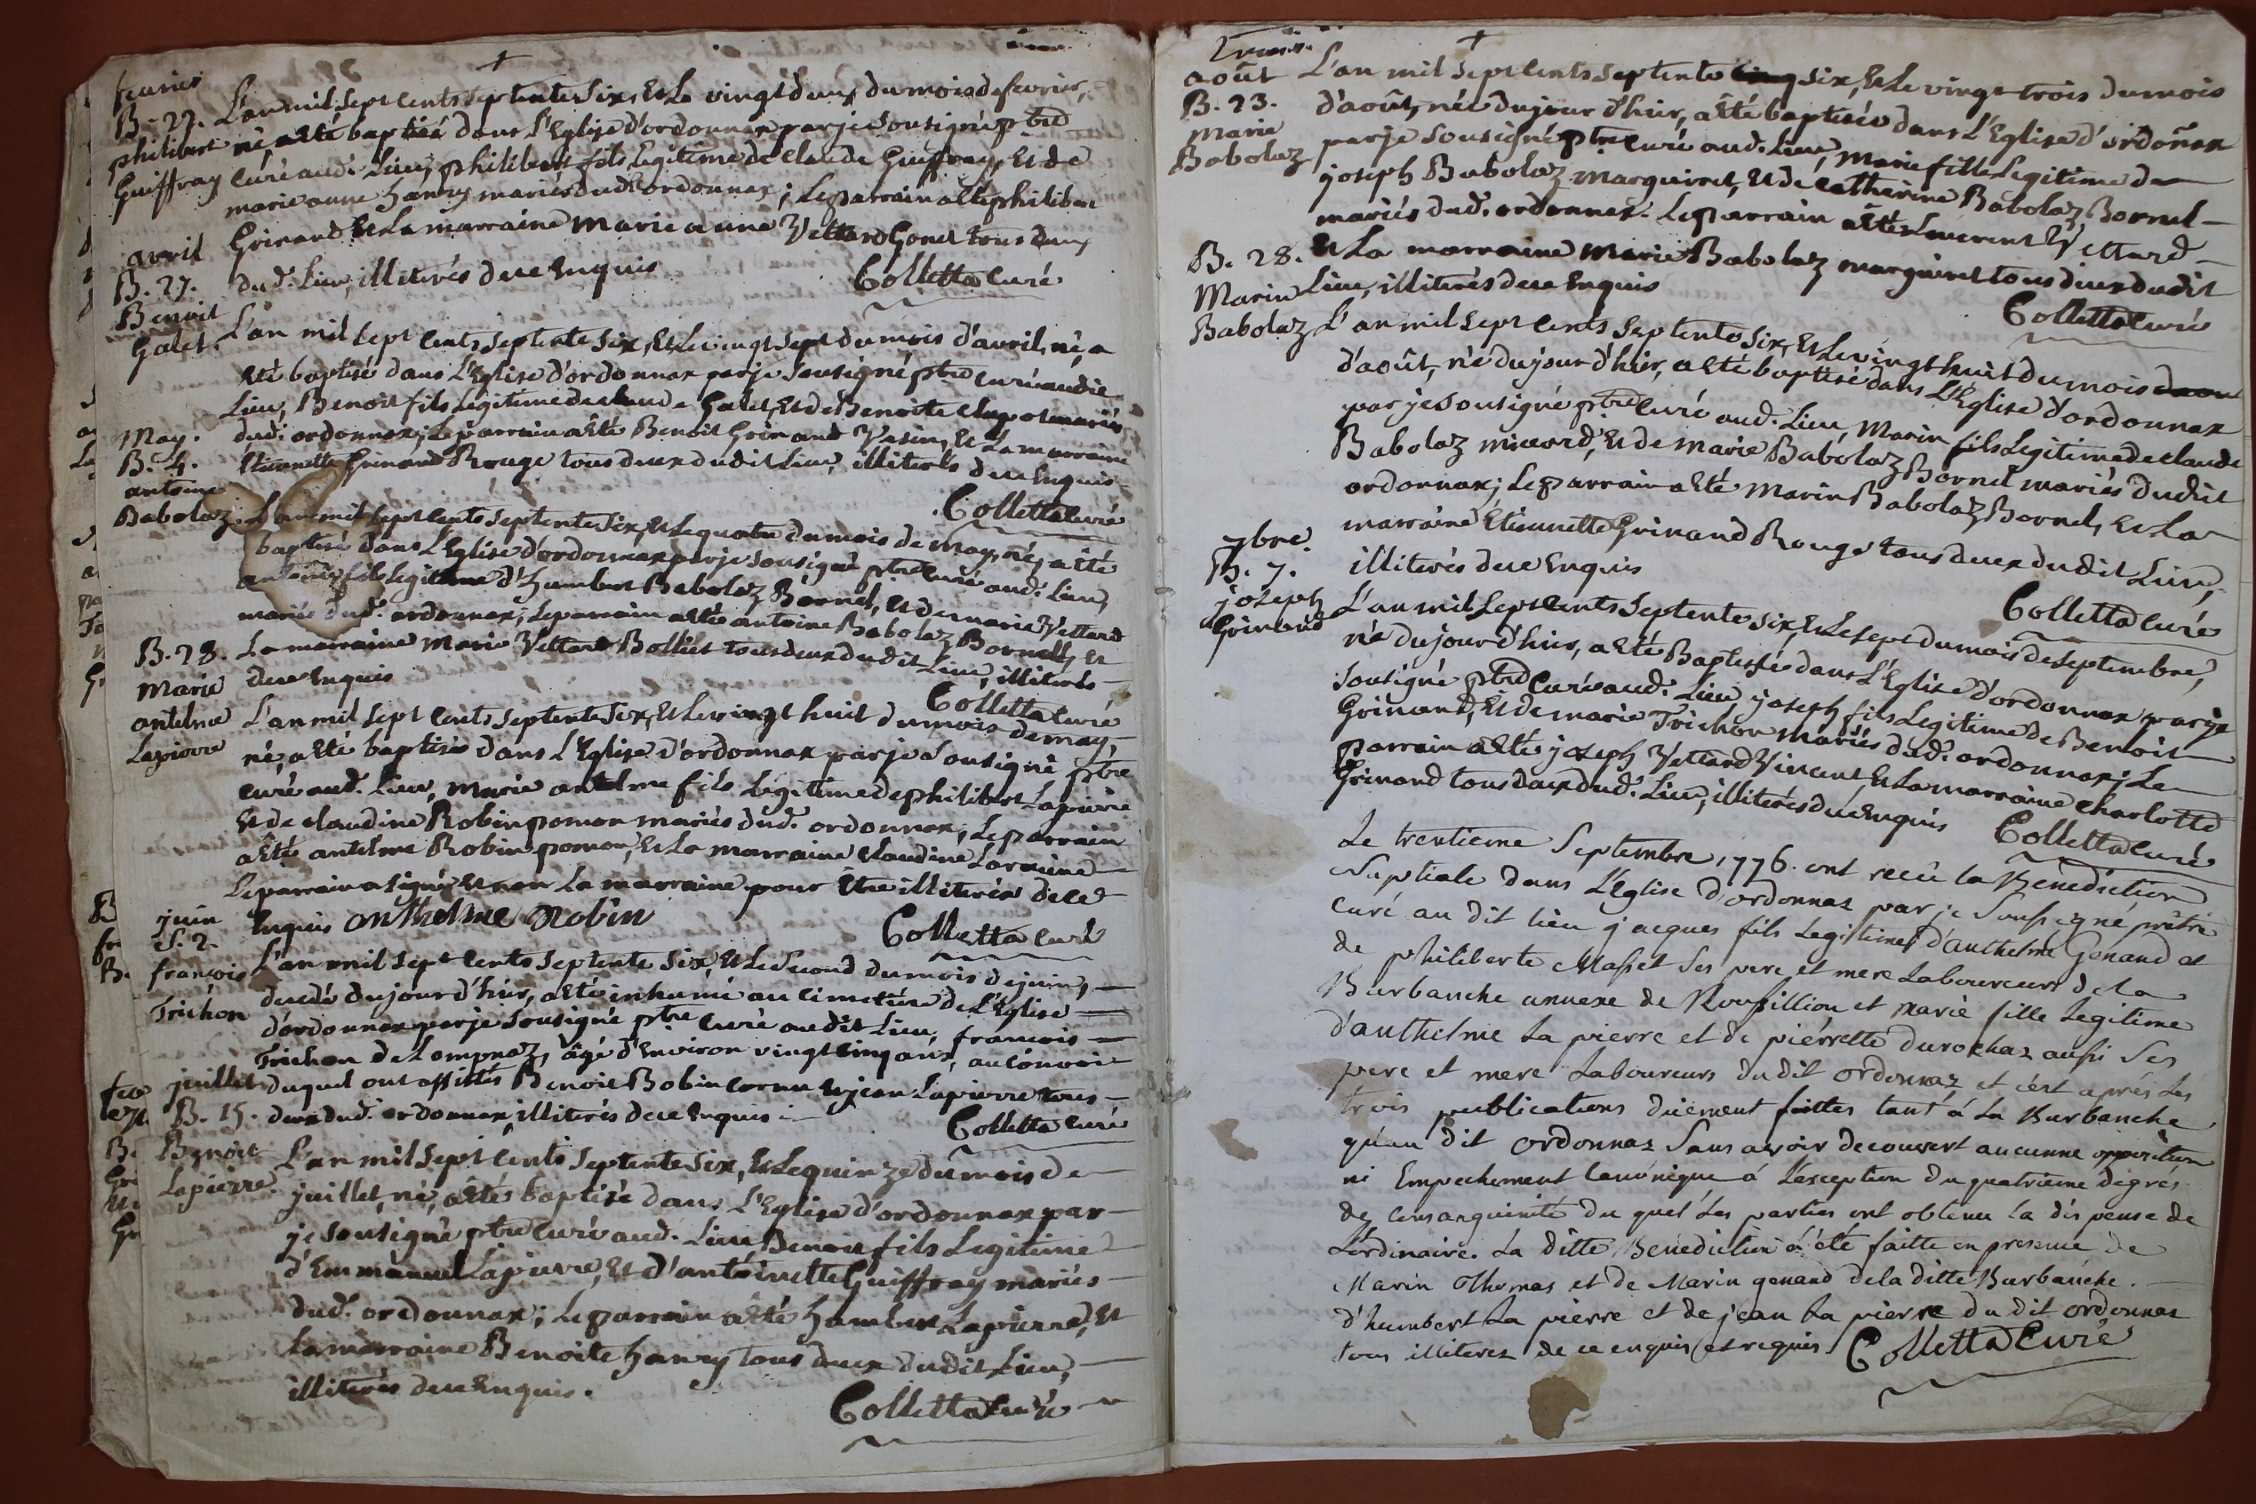 fevrier
B. 22.
philibert
Guiffray
L'an mil sept cents septente six, et le vingt deux du mois de fevrier,
né, a été baptisé dans l'Eglise d'ordonnax par je sousigné ptre
curé aud. Lieu, philibert fils Legitime de Claude Guiffray, et de
marie anne hanry mariés dud. ordonnax; Le parrain a été philibert
Grinand et La marraine Marie anne Vettard Gonet tous deux
dud. Lieu, illiterés de ce Enquis
Colletta Curé
avril
B. 27.
Benoit
Galet.
L'an mil sept cents septente six, et le vingt sept du mois d'avril, né, a
été baptisé dans L'Eglise d'ordonnax par je sousigné ptre curé audit
Lieu, Benoit fils Legitime de claude Galet, et de Benoite mariés
dud. ordonnax; Le parrain a été Benoit Grinand et La marraine
Etiennette Grinand Rouge tous deux dudit Lieu, illiterés de ce Enquis
Colletta Curé
May.
B. 4.
antoine
Babolaz
L'an mil sept cents septente six, et le quatre du mois de may, né, a été
baptisé dans L'Eglise d'ordonnax par je sousigné ptre curé aud. Lieu,
antoine fils Legitime d'humbert Babolaz Bornel, et de marie Vettard
mariés dud. ordonnax; Le parrain a été antoine Babolaz Bornel, et
La marraine Marie Vettard Bolliet tous deux dudit Lieu, illiterés
de ce Enquis
Colletta Curé
B. 28.
Marie
antelme
Lapierre
L'an mil sept cents septente six, et le vingt huit du mois de may,
né, a été baptisé dans L'Eglise d'ordonnax par je sousigné ptre
curé aud. Lieu, Marie antelme fils Légitime de philibert Lapierre
et de claudine Robin pomon mariés dud. ordonnax; Le parrain
a été antelme Robin pomon, et La marraine Claudine Lorraine
Le parrain a signé et non La marraine pour être illiterée de ce
Enquis anthelme Robin
Colletta Curé
juin
S. 2.
françois
Trichon
L'an mil sept cents septente six, et Le second du mois de juin,
decedé du jour d'hier, a été inhumé au cimetière de L'Eglise
d'ordonnax par je sousigné ptre curé audit Lieu, françois
Trichon de Lompnaz, âgé d'Environ vingt cinq ans, au convoi
duquel ont assistés Benoit Bobin cornu et jean Lapierre tous
deux dud. ordonnax, illiterés de ce Enquis
Colletta Curé
juillet
B. 15.
Benoit
Lapierre.
L'an mil sept cents septente six, et Le quinze du mois de
juillet, né, a été baptisé dans L'Eglise d'ordonnax par
je sousigné ptre curé aud. Lieu Benoit fils Legitime
d'Emmanuel Lapierre, et d'antoinette Guiffray mariés
dud. ordonnax; Le parrain a été humbert Lapierre, et
La marraine Benoite hanry tous deux dudit Lieu,
illiterés de ce Enquis.
Colletta Curé
août
B. 23.
Marie
Babolaz
L'an mil sept cents septente six, et Le vingt trois du mois
d'août, née du jour d'hier, a été baptisée dans L'Eglise d'ordonnax
par je sousigné ptre curé aud. Lieu, Marie fille Legitime de
joseph Babolaz Marquinet, et de catherine Babolaz Bornel
mariés dud. ordonnax. Le parrain a été Laurent Vettard
et La marraine Marie Babolaz marquinet tous deux dudit
Lieu, illiterés de ce Enquis
Colletta Curé
B. 28.
Marin
Babolaz
L'an mil sept cents septente six, et Le vingt huit du mois
d'août, né du jour d'hier, a été baptisé dans L'Eglise d'ordonnax
par je sousigné ptre curé aud. Lieu, Marin fils Legitime de claude
Babolaz micord, et de marie Babolaz Bornel mariés dudit
ordonnax; Le parrain a été Marin Babolaz Bornel, et La
marraine Etiennette Grinand Rouge tous deux dudit Lieu,
illiterés de ce Enquis
Colletta Curé
7bre.
B. 7.
joseph
Grinand
L'an mil sept cents septente six, et Le sept du mois de septembre,
né du jour d'hier, a été Baptisé dans L'Eglise d'ordonnax par je
sousigné ptre curé aud. Lieu joseph fils Legitime de Benoit
Grinand, et de marie Trichon mariés dud. ordonnax; Le
parrain a été joseph Vettard Vincent, et La marraine Charlotte
Grinand tous deux dud. Lieu, illiterés de ce Enquis
Colletta Curé
Le trentieme Septembre 1776. ont recû la Benediction
Nuptiale dans L'Eglise d'ordonnaz par je Soussigné prêtre
curé au dit lieu jacques fils Legitime d'anthelme Genand et
de philiberte Masset Ses pere et mere Laboureurs de la
Burbanche annexe de Roussillion et Marie fille Legitime
d'anthelme La pierre et de pierrette durochaz aussi Ses
pere et mere Laboureurs du dit ordonnaz et c'est aprés Les
trois publications düement faittes tant á La Burbanche
qu'au dit ordonnaz Sans avoir decouvert aucunne opposition
ni Empechement Canónique á L'exception du quatrieme degrés
de Consanguinité du quel Les parties ont obtenu la dispense de
L'ordinaire. La ditte Benediction á été faitte en presence de
Marin Thomas et de Marin genand de la ditte Burbanche.
d'humbert La pierre et de jean La pierre du dit ordonnaz
tous illiterez de ce enquis et requis.
Colletta Curé